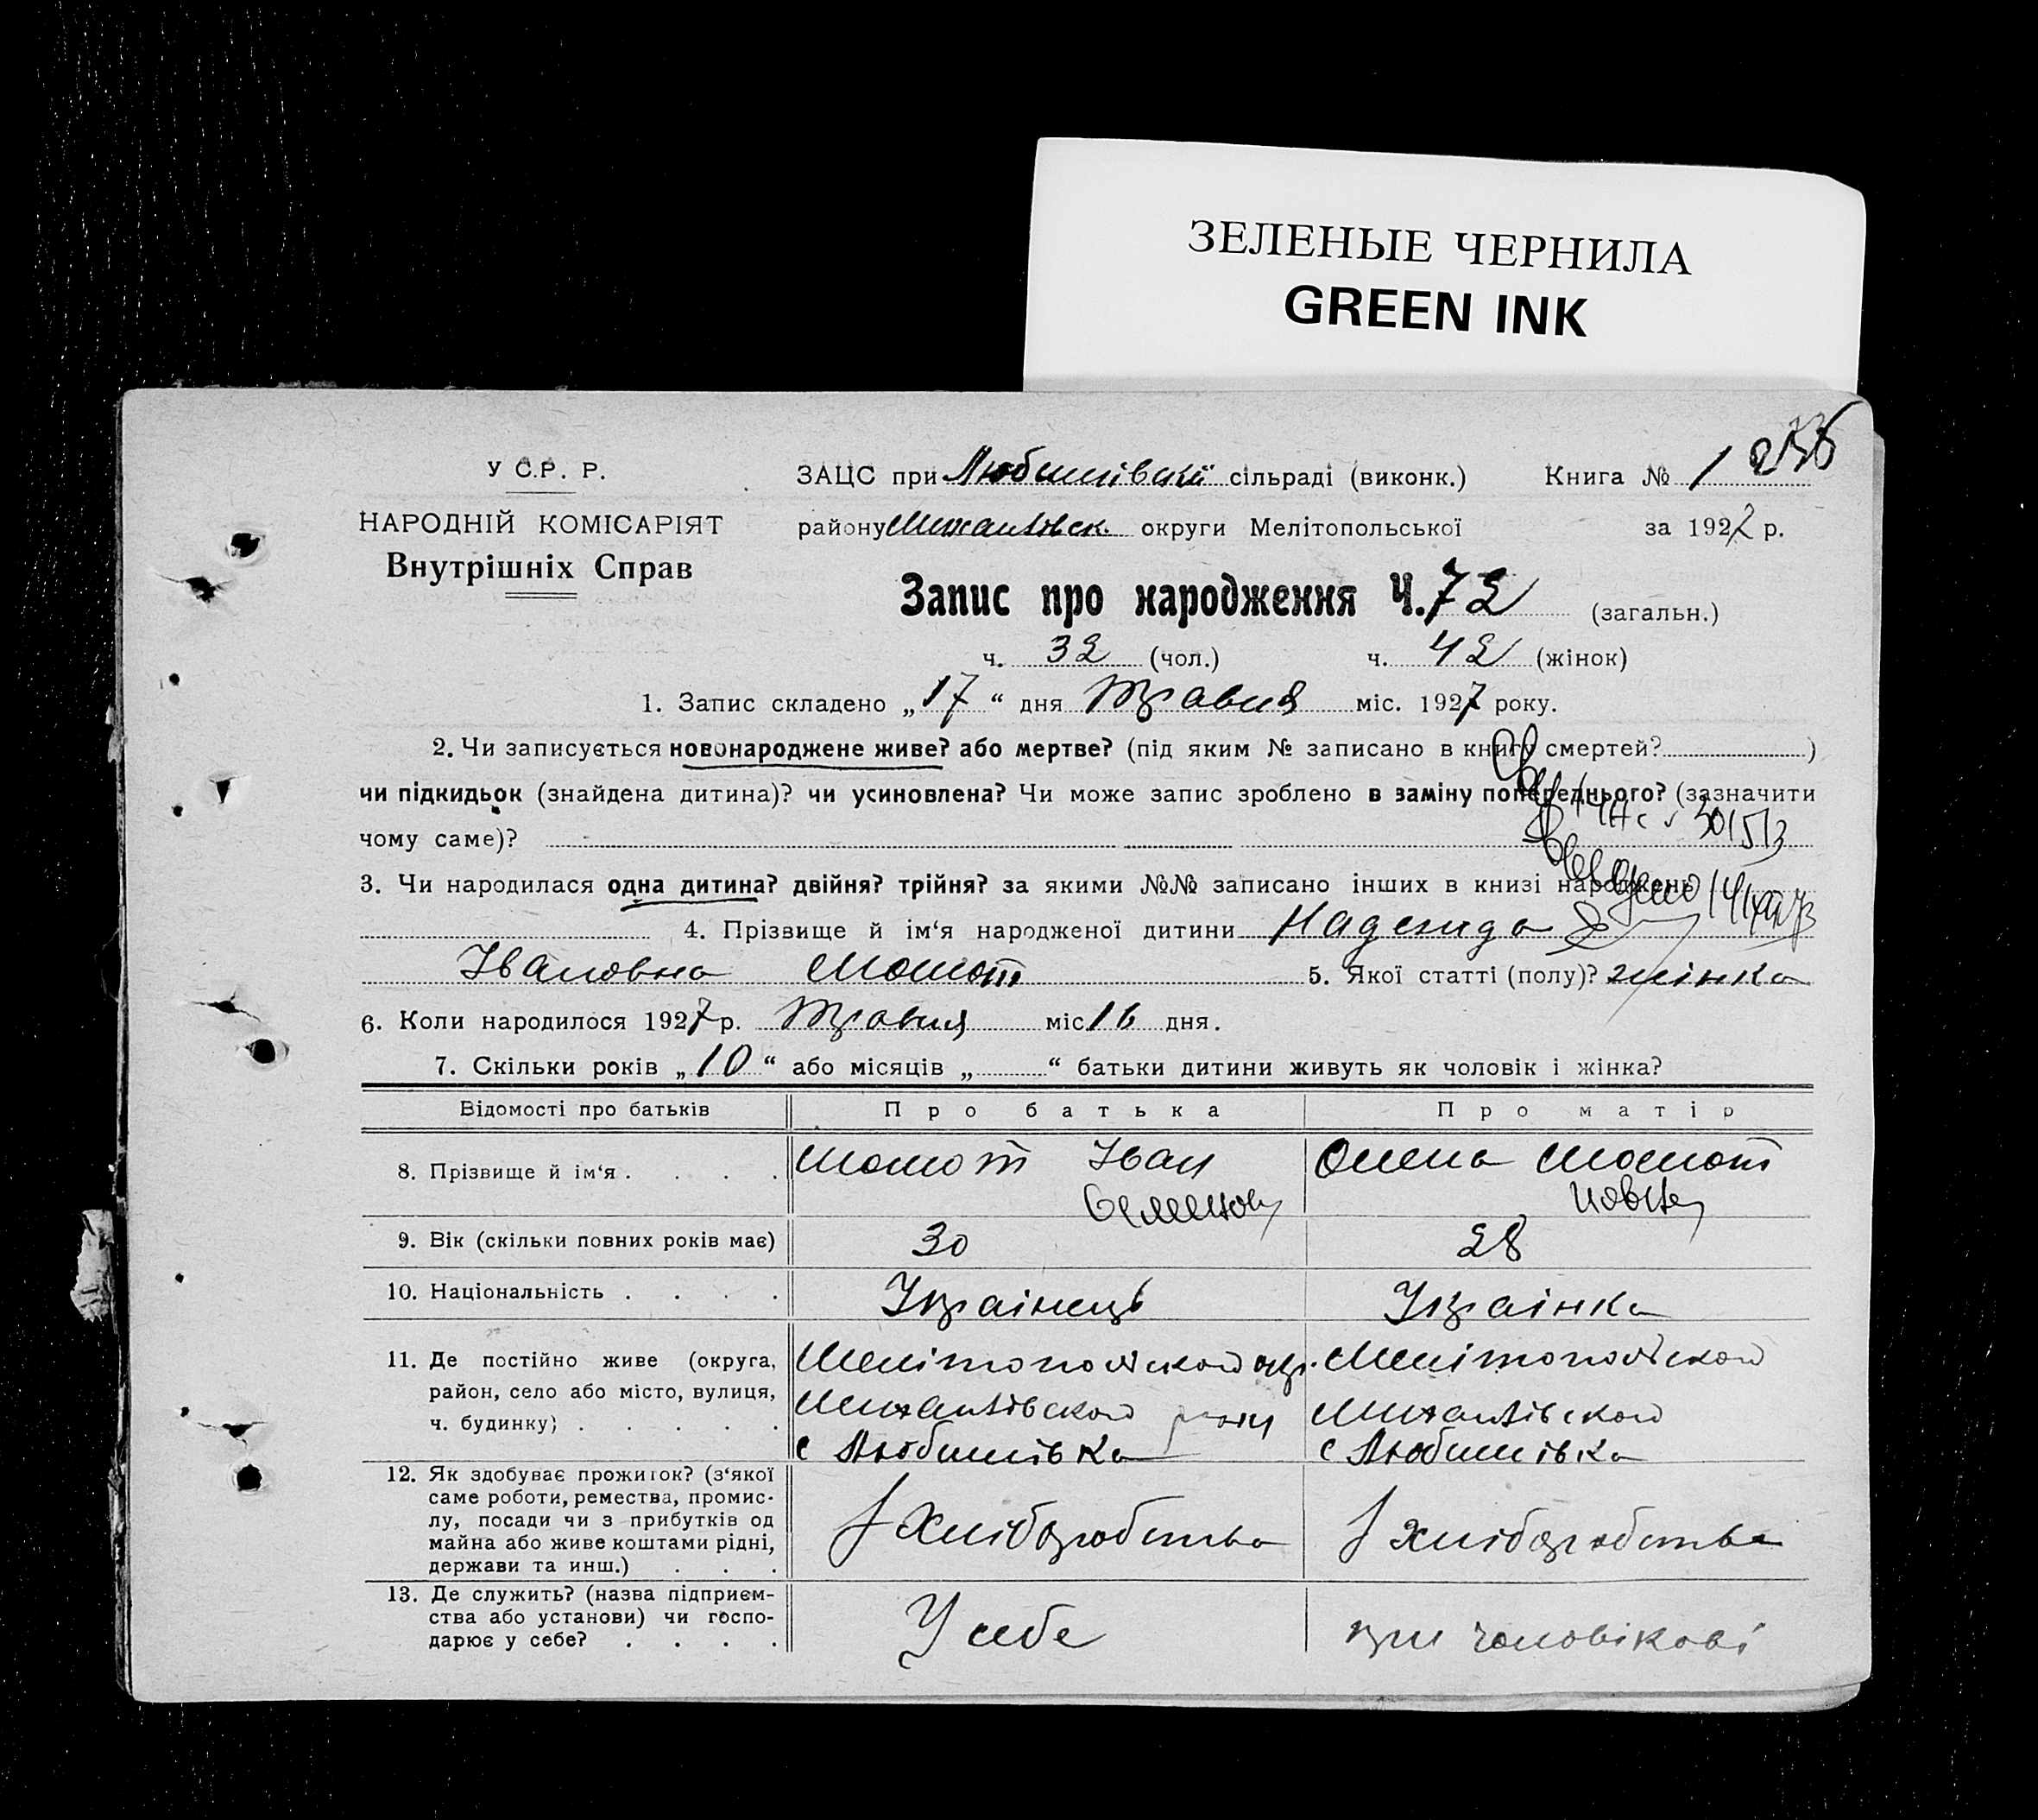 ЗЕЛЕНЫЕ ЧЕРНИЛА
GREEN INK
У С.Р. Р.
НАРОДНІЙ КОМІСАРІЯТ
Внутрішніх Справ
ЗАЦС при Любимівській сільраді (виконк.) Книга № 1
району Михайлівськ. округи Мелітопольської за 1927 р.
Запис про народження Ч. 72 (загальн.)
ч. 32 (чол.) ч. 42 (жінок)
1. Запис складено „17“ дня Травня міс. 1927 року.
2. Чи записується новонароджене живе? або мертве? (під яким № записано в книгу смертей? )
чи підкидьок (знайдена дитина)? чи усиновлена? Чи може запис зроблено в заміну попереднього? (зазначити
чому саме)?
3. Чи народилася одна дитина? двійня? трійня? за якими №№ записано інших в книзі народжень
4. Прізвище й ім‘я народженої дитини Надежида
Івановна Момот 5. Якої статті (полу)? жінка
6. Коли народилося 1927 р. Травня міс. 16 дня.
7. Скільки років „10“ або місяців „ “ батьки дитини живуть як чоловік і жінка?
Відомості про батьків Про батька Про матір
8. Прізвище й ім‘я . . . . Момот Іван Олена Момот
Семенов
9. Вік (скільки повних років має) 30 28
10. Національність . . . . Українець Українка
11. Де постійно живе (округа, Мелітопольскои окр. Мелітопольскои
район, село або місто, вулиця, Михайлівскои Михайлівскои
ч. будинку) . . . . . с Любимівка с Любимівка
12. Як здобуває прожиток? (з‘якої
саме роботи, ремества, промис-
лу, посади чи з прибутків од
майна або живе коштами рідні, хліборобства хліборобства
держави та инш.) . . .
13. Де служить? (назва підприєм-
ства або установи) чи госпо-
дарює у себе? . . . . У себе при чоловікові